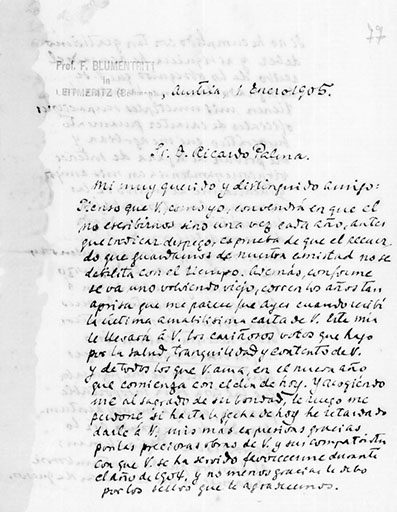 77
Prof. F. BLUMENTRITT
in
LEITMERITZ
, Austria, 1 Enero 1905.
Sr. D. Ricardo Palma.
Mi muy querido y distinguido amigo:
Pienso que V., como yo, convendrá en que el
no escribirnos sino una vez cada año, antes
que indicar despego, es prueba de que el recuer-
do que guardamos de nuestra amistad no se
debilita con el tiempo. Además, conforme
se va uno volviendo viejo, corren los años tan
aprisa que me parece fue ayer cuando recibí
la última amabilísima carta de V. Esta mía
le llevará á V. los cariñosos votos que hago
por la salud, tranquilidad y contento de V.
y de todos los que V. ama, en el nuevo año
que comienza con el día de hoy. Y acogiendo
me al sagrado de su bondad, le ruego me
perdone si hasta la fecha de hoy he retardado
darle á V. mis más expresivas gracias
por las preciosas obras de V. y sus compatriotas
con que V. se ha servido favorecerme durante
el año de 1904, y no menos gracias le debo
por los sellos que le agradecemos.